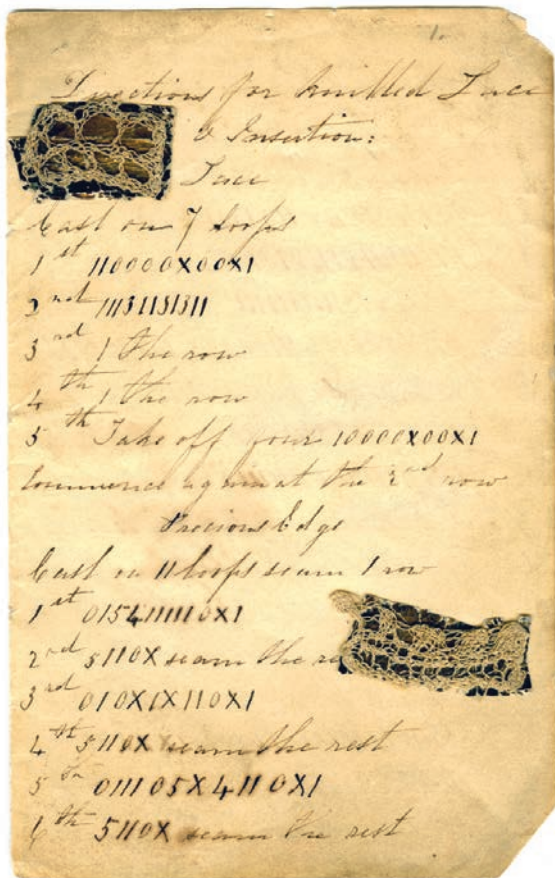 1.
Directions for Knitted Lace
& Insertion:
Lace
Cast on 7 loops
1st 110000X00X1
2nd 11131151311
3rd 1 the row
4th 1 the row
5th Take off four 10000X00X1
Commence again at the 2nd row
Precious Edge
Cast on 11 loops seam 1 row
1st 0154111110X1
2nd 5110X seam the
3rd 010X1X110X1
4th 5110X seam the rest
5th 011105X4110X1
6th 5110X seam the rest